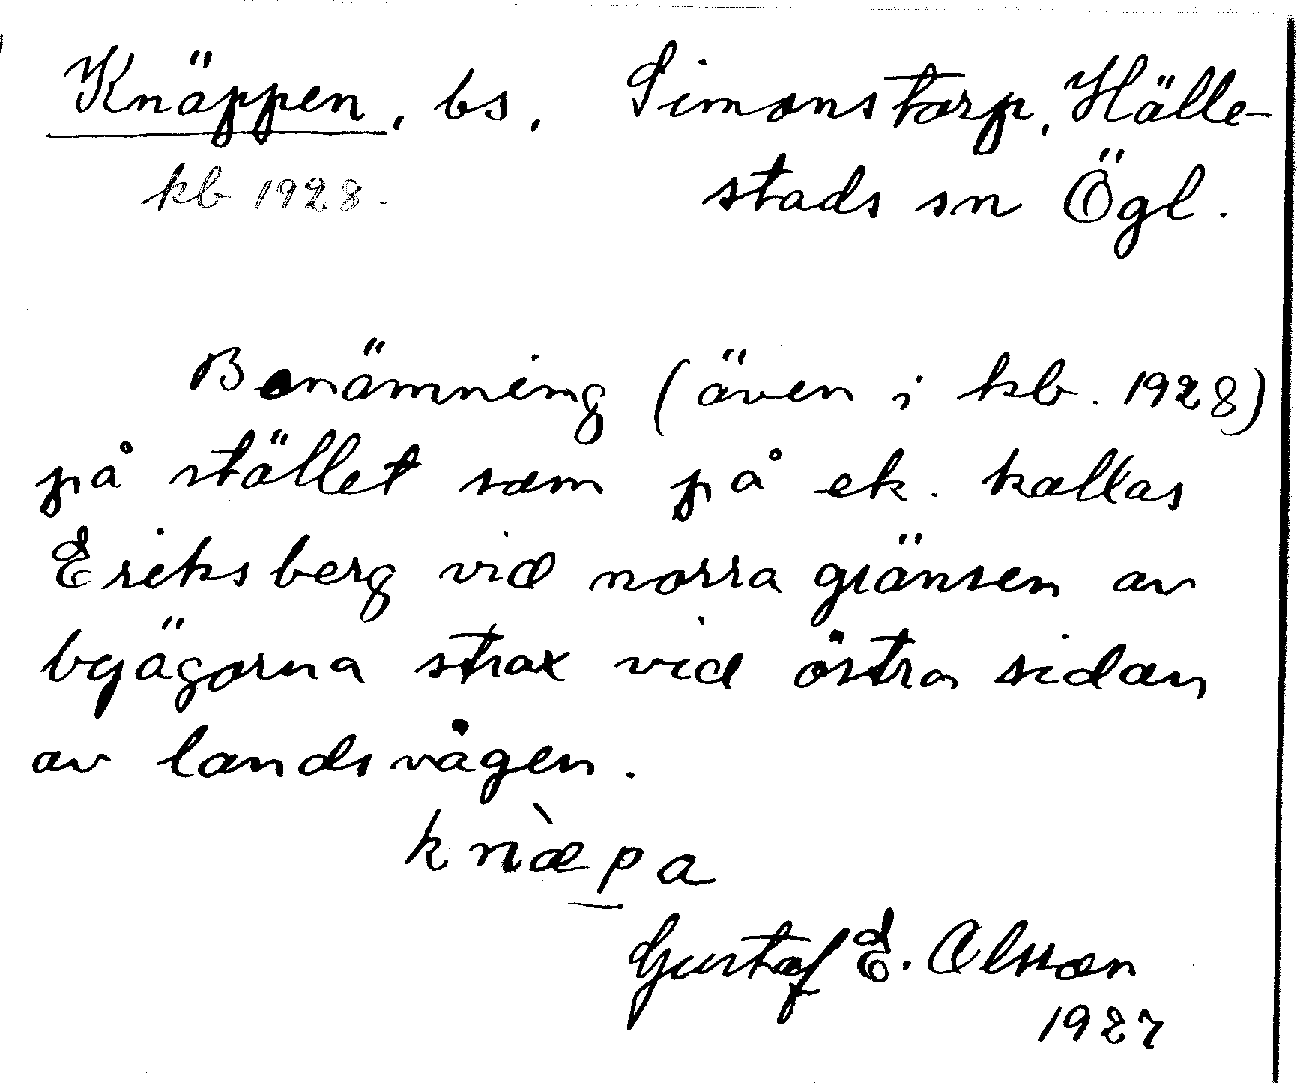 Knäppen, bs. Simonstorp, Hälle-
kb 1928. stads sn Ögl.
Benämning (även i kb. 1928)
på stället som på ek. kallas
Eriksberg vid norra gränsen av
byägorna strax vid östra sidan
av landsvägen.
knæ̀pa
Gustaf E. Olsson
1927